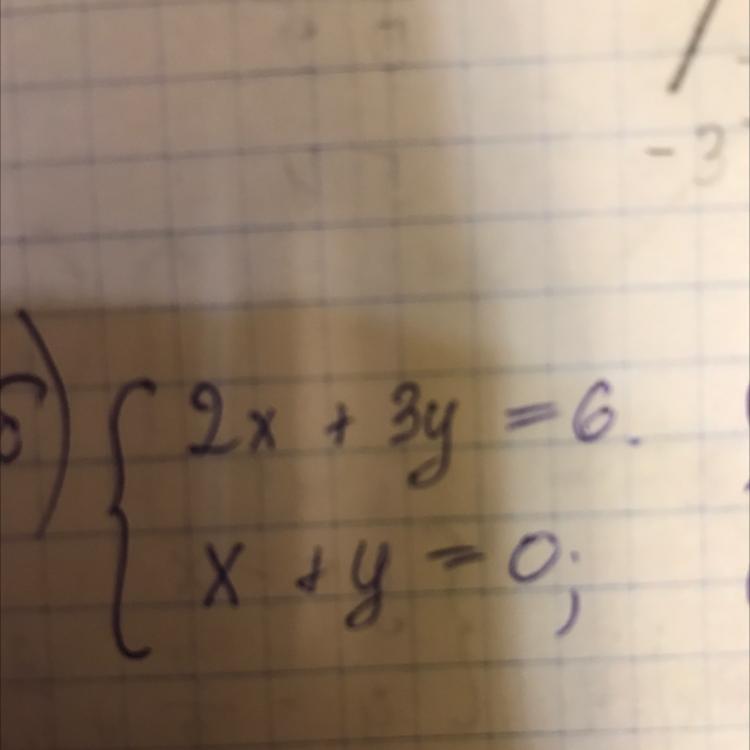 - 3
б) { 2x + 3y = 6.
x + y = 0;